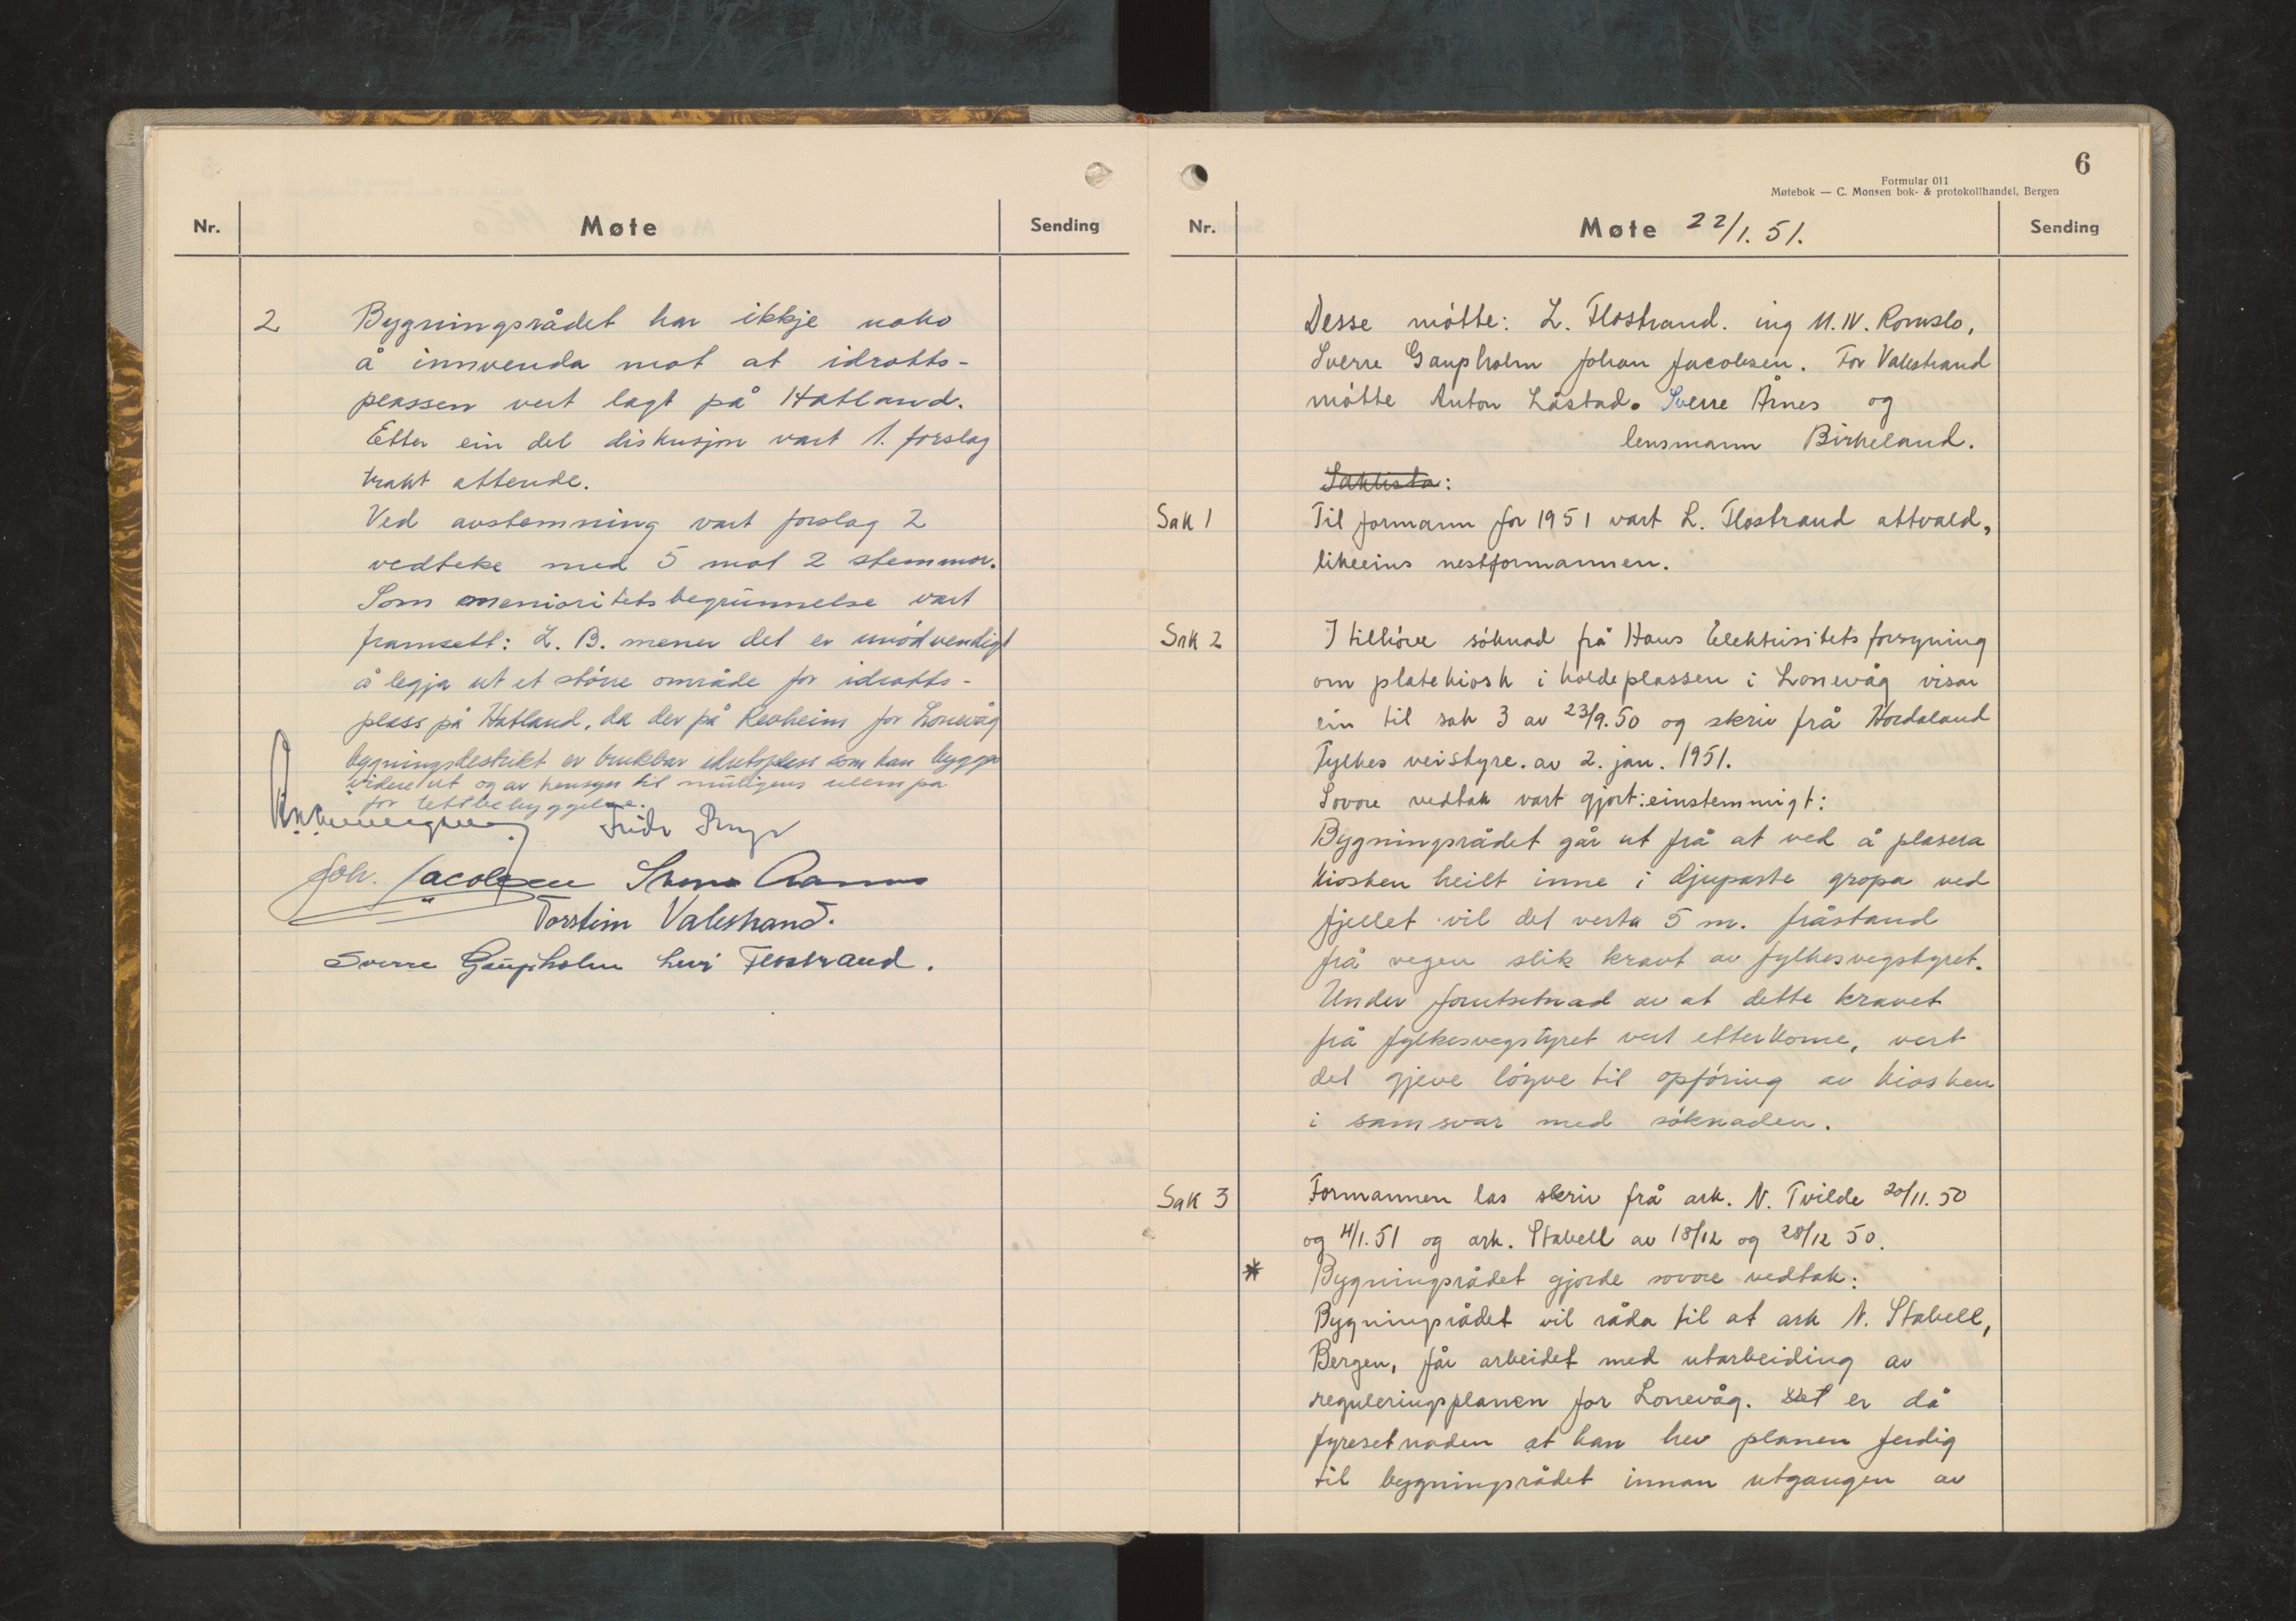 Nr.
Møte
Sending
2 Bygningsrådet har ikkje noko
å innvenda mot at idrotts-
plassen vert lagt på Hatland.
Etter ein del diskusjon vart 1. forslag
trakt attende.
Ved avstemning vart forslag 2
vedteke med 5 mot 2 stemmor.
Som menioritetsbegrunnelse vart
framsett: L. B. mener det er unödvendigt
å legja ut et större område for idrotts-
plass på Hatland, da der på Revheim for Lonevåg
bygningsdestrikt er brukbar idrotsplass som kan bygges
videre ut og av hensyn til muligens ulempa
for tettbebyggelse.
Joh. Jacobsen Sverre Aarnes
Torstein Valestrand.
Sverre Gaupholm Levi Flostrand.
6
Formular 011
Møtebok — C. Monsen bok- & protokollhandel, Bergen
Nr.
Møte 22/1. 51.
Sending
Desse mötte: L. Flostrand. ing M. N. Romslo,
Sverre Gaupholm Johan Jacobsen. For Valestrand
mötte Anton Låstad. Sverre Årnes og
lensmann Birkeland.
Saklista:
Sak 1 Til formann for 1951 vart L. Flostrand attvald,
likeeins nestformannen.
Sak 2 I tilhöve söknad frå Haus Elektrisitetsforsyning
om platekiosk i holdeplassen i Lonevåg visar
ein til sak 3 av 23/9.50 og skriv frå Hordaland
Fylkes veistyre. av 2. jan. 1951.
Sovore vedtak vart gjort: einstemmigt:
Bygningsrådet går ut frå at ved å plasera
kiosken heilt inne i djupaste gropa ved
fjellet vil det verta 5 m. fråstand
frå vegen slik kravt av fylkesvegstyret.
Under forutsetnad av at dette kravet
frå fylkesvegstyret vert etterkome, vert
det gjeve löyve til opföring av kiosken
i samsvar med söknaden.
Sak 3 Formannen las skriv frå ark. N. Tvilde 20/11. 50
og 4/1. 51 og ark. Stabell av 18/12 og 28/12 50.
* Bygningsrådet gjorde sovore vedtak:
Bygningsrådet vil råda til at ark N. Stabell,
Bergen, får arbeidet med utarbeiding av
reguleringsplanen for Lonevåg. Det er då
fyresetnaden at han hev planen ferdig
til bygningsrådet innan utgangen av